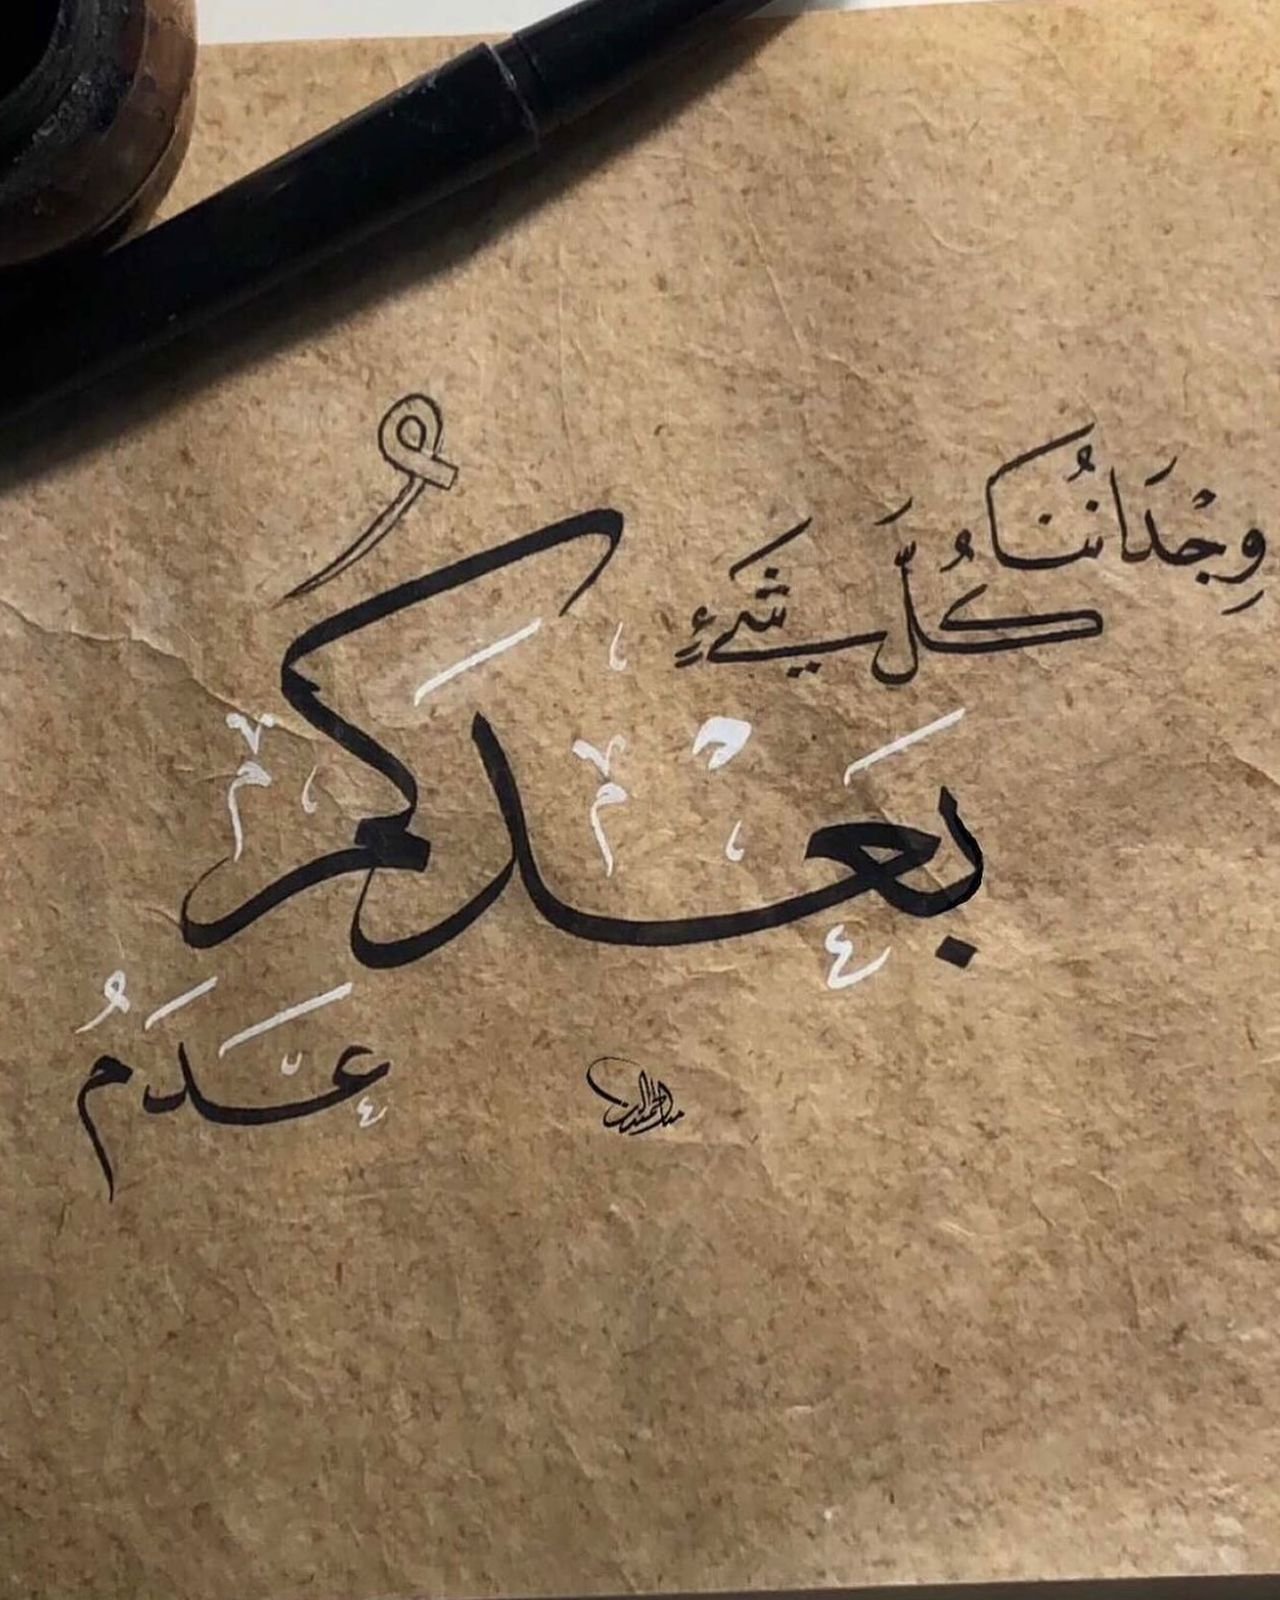 وِجْدَانُنَا
كُلَّ شَيْءٍ
بَعْدَكُمْ
عَدَمُ